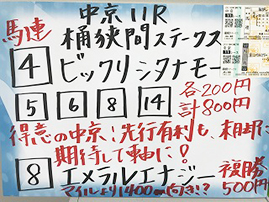 馬連
中京11R
桶狭間ステークス
4 ビックリシタナモー
5 6 8 14 各200円
計800円
得意の中京、先行有利も、相助に
期待して軸に!
8 エメラルエナジー 複勝
マイルより1400m向き!? 500円